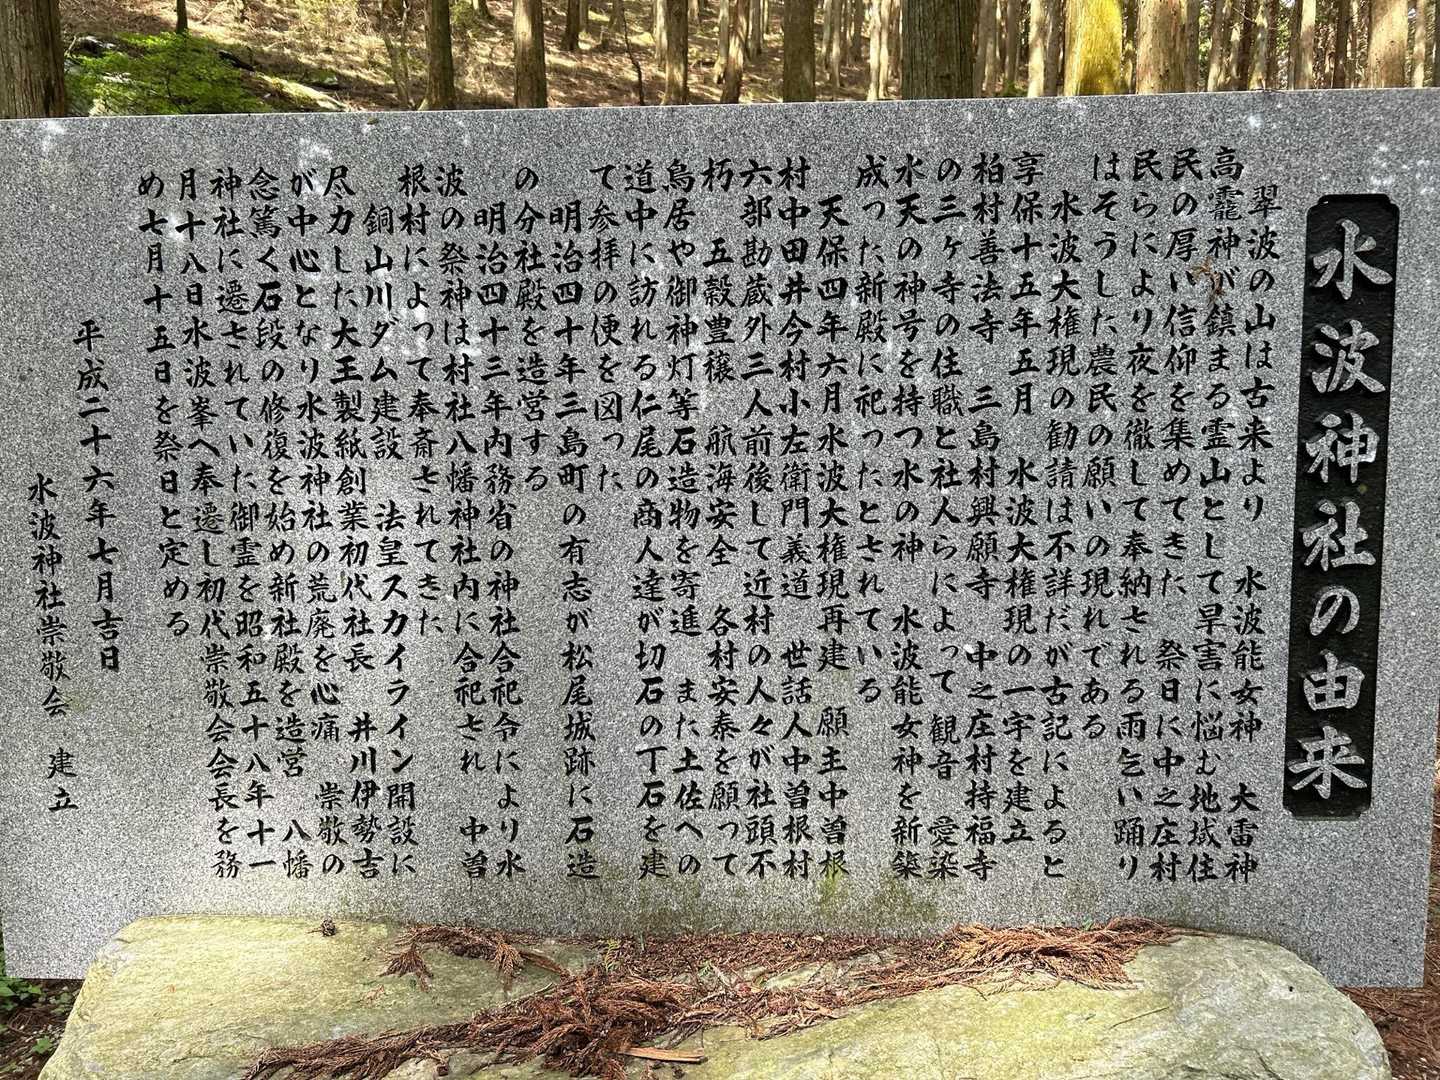 水波神社の由来
翠波の山は古来より　水波能女神　大雷神
高靇神が鎮まる霊山として旱害に悩む地域住
民の厚い信仰を集めてきた　祭日に中之庄村
民らにより夜を徹して奉納される雨乞い踊り
はそうした農民の願いの現れである
水波大権現の勧請は不詳だが古記によると
享保十五年五月　水波大権現の一宇を建立
柏村善法寺　三島村興願寺　中之庄村持福寺
の三ヶ寺の住職と社人らによって観音　愛染
水天の神号を持つ水の神　水波能女神を新築
成った新殿に祀ったとされている
天保四年六月水波大権現再建　願主中曽根
村中田井今村小左衛門義道　世話人中曽根村
六部勘蔵外三人前後して近村の人々が社頭不
朽　五穀豊穣　航海安全　各村安泰を願って
鳥居や御神灯等石造物を寄進　また土佐への
道中に訪れる仁尾の商人達が切石の丁石を建
て参拝の便を図った
明治四十年三島町の有志が松尾城跡に石造
の分社殿を造営する
明治四十三年内務省の神社合祀令により水
波の祭神は村社八幡神社内に合祀され　中曽
根村によって奉斎されてきた
銅山川ダム建設　法皇スカイライン開設に
尽力した大王製紙創業初代社長　井川伊勢吉
が中心となり水波神社の荒廃を心痛　崇敬の
念篤く石段の修復を始め新社殿を造営　八幡
神社に遷されていた御霊を昭和五十八年十一
月十八日水波峯へ奉遷し初代崇敬会会長を務
め七月十五日を祭日と定める
平成二十六年七月吉日
水波神社崇敬会　建立